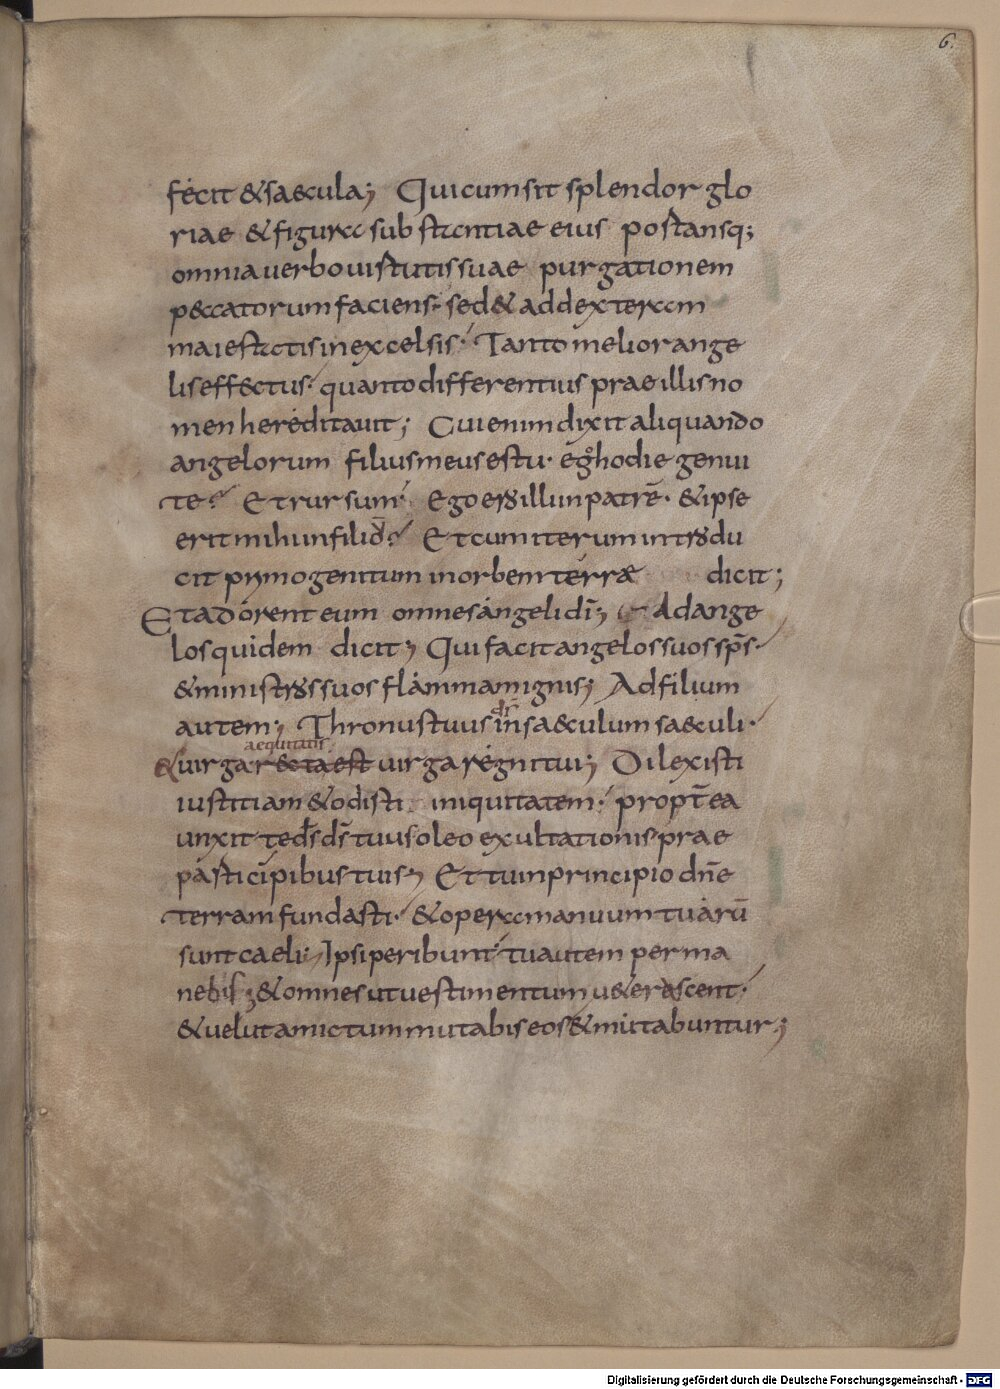 6.
fecit & saecula; Qui cum sit splendor glo
riae & figura substantiae eius postansq;
omnia uerbo uirtutis suae purgationem
p&catorum faciens· sed& ad dexteram
maiestatis in excelsis· Tanto melior ange
lis eff&ctus· quanto differentius prae illis no
men hereditauit; Cui enim dixit aliquando
angelorum filius meus es tu· ego hodie genui
te? Et rursum· Ego ero illi in patrē· & ipse
erit mihi in filiū? Et cum iterum introdu
cit primogenitum in orbem terræ dicit;
Et adorent eum omnes angeli dī; Ad ange
los quidem dicit; Qui facit angelos suos sp̄s·
& ministros suos flammam ignis; Ad filium
autem; Thronus tuus d̄s in saeculum saeculi·
aequitatis
& uirga r&cta est uirga regni tui; Dilexisti
iustitiam & odisti iniquitatem· propt̄ea
unxit te d̄s d̄s tuus oleo exultationis prae
participibus tuis; Et tu in principio dn̄e
terram fundasti· & opera manuum tuarū
sunt caeli; Ipsi peribunt· tu autem perma
nebis; & omnes ut uestimentum u&erascent·
& uelut amictum mutabis eos & mutabuntur;
Digitalisierung gefördert durch die Deutsche Forschungsgemeinschaft - DFG